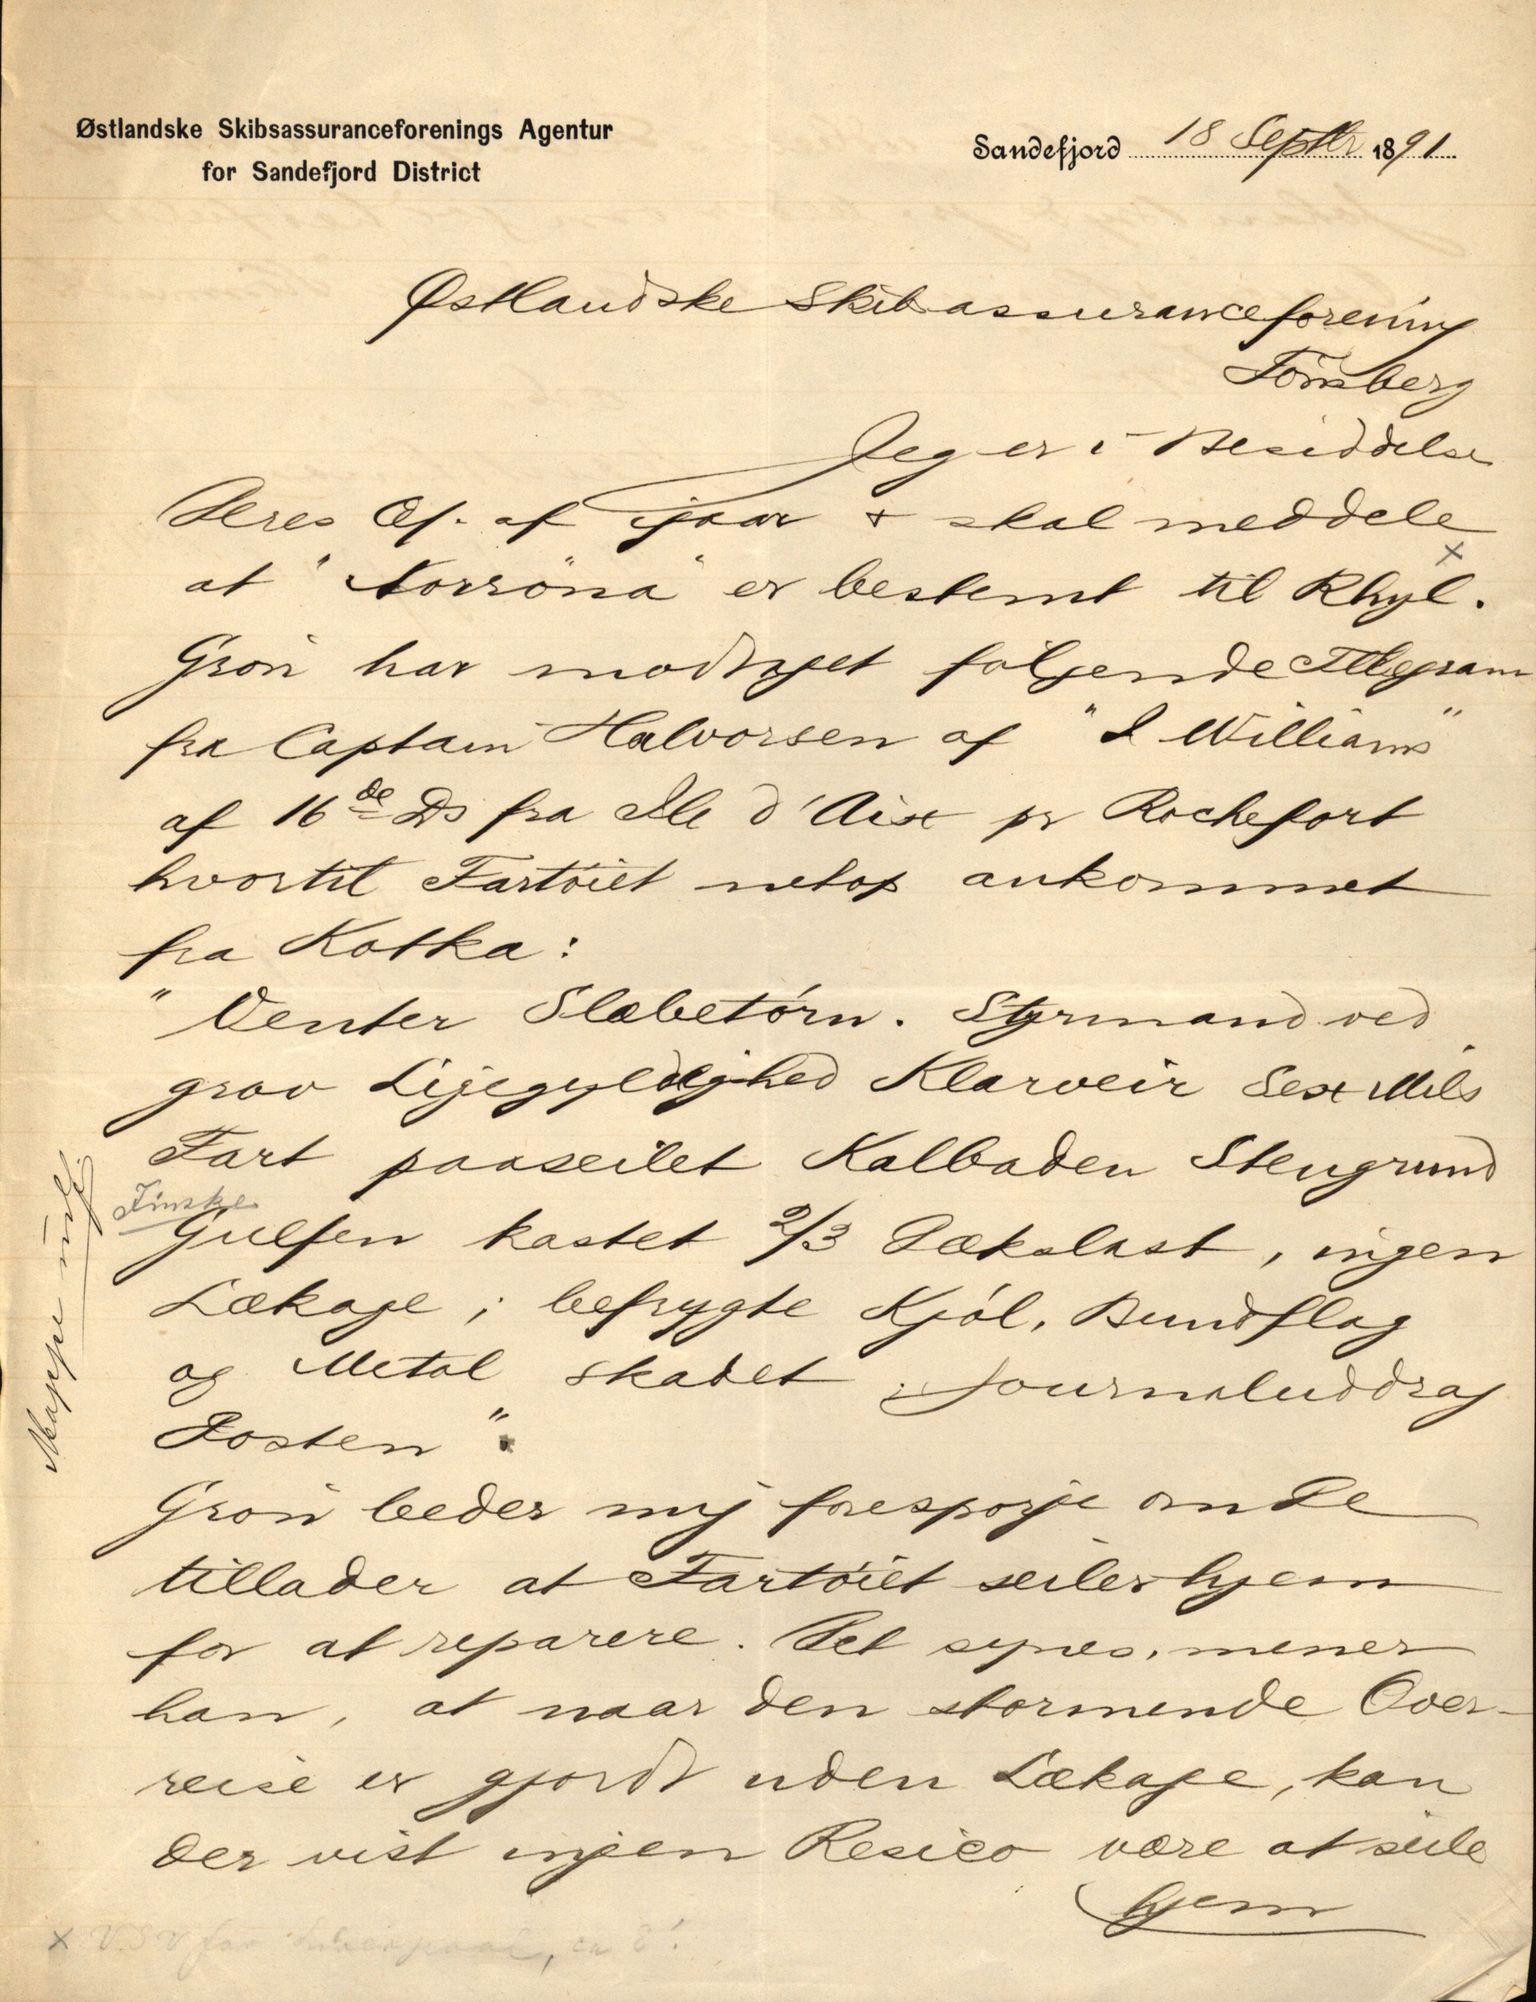 Østlandske Skibsassuranceforenings Agentur
for Sandefjord District
Sandefjord 18 Septbr 1891
Østlandske Skibsassuranceforening
Tönsberg
Jeg er i Besiddelse
Deres af igaar & skal meddele
at "Norröna" er bestemt til Rhyl. x
Grön har modtaget følgende Telegram
fra Captain Halvorsen af "I Williams"
af 16de Ds fra Ile d'Aix pr Rochefort
hvortil Fartöiet netop ankommet
fra Kotka:
"Venter Slæbetörn. Styrmand ved
grov Ligegyldighed Klarveir Sex Mils
Fart paaseilet Kalbaden Stengrund
Finske
Gulfen kastet 2/3 Dækslast, ingen
Lækage; befrygte Kjöl, Bundflag
og Metal skadet. Journaluddrag
Posten".
Grön beder mig forespørge om De
tillader at Fartöiet seiler hjem
for at reparere. Det synes, mener
han, at naar den stormende Over-
reise er gjordt uden Lækage, kan
der vist ingen Resico være at seile
hjem
Mappe
x V.S.V for Liverpool, ca